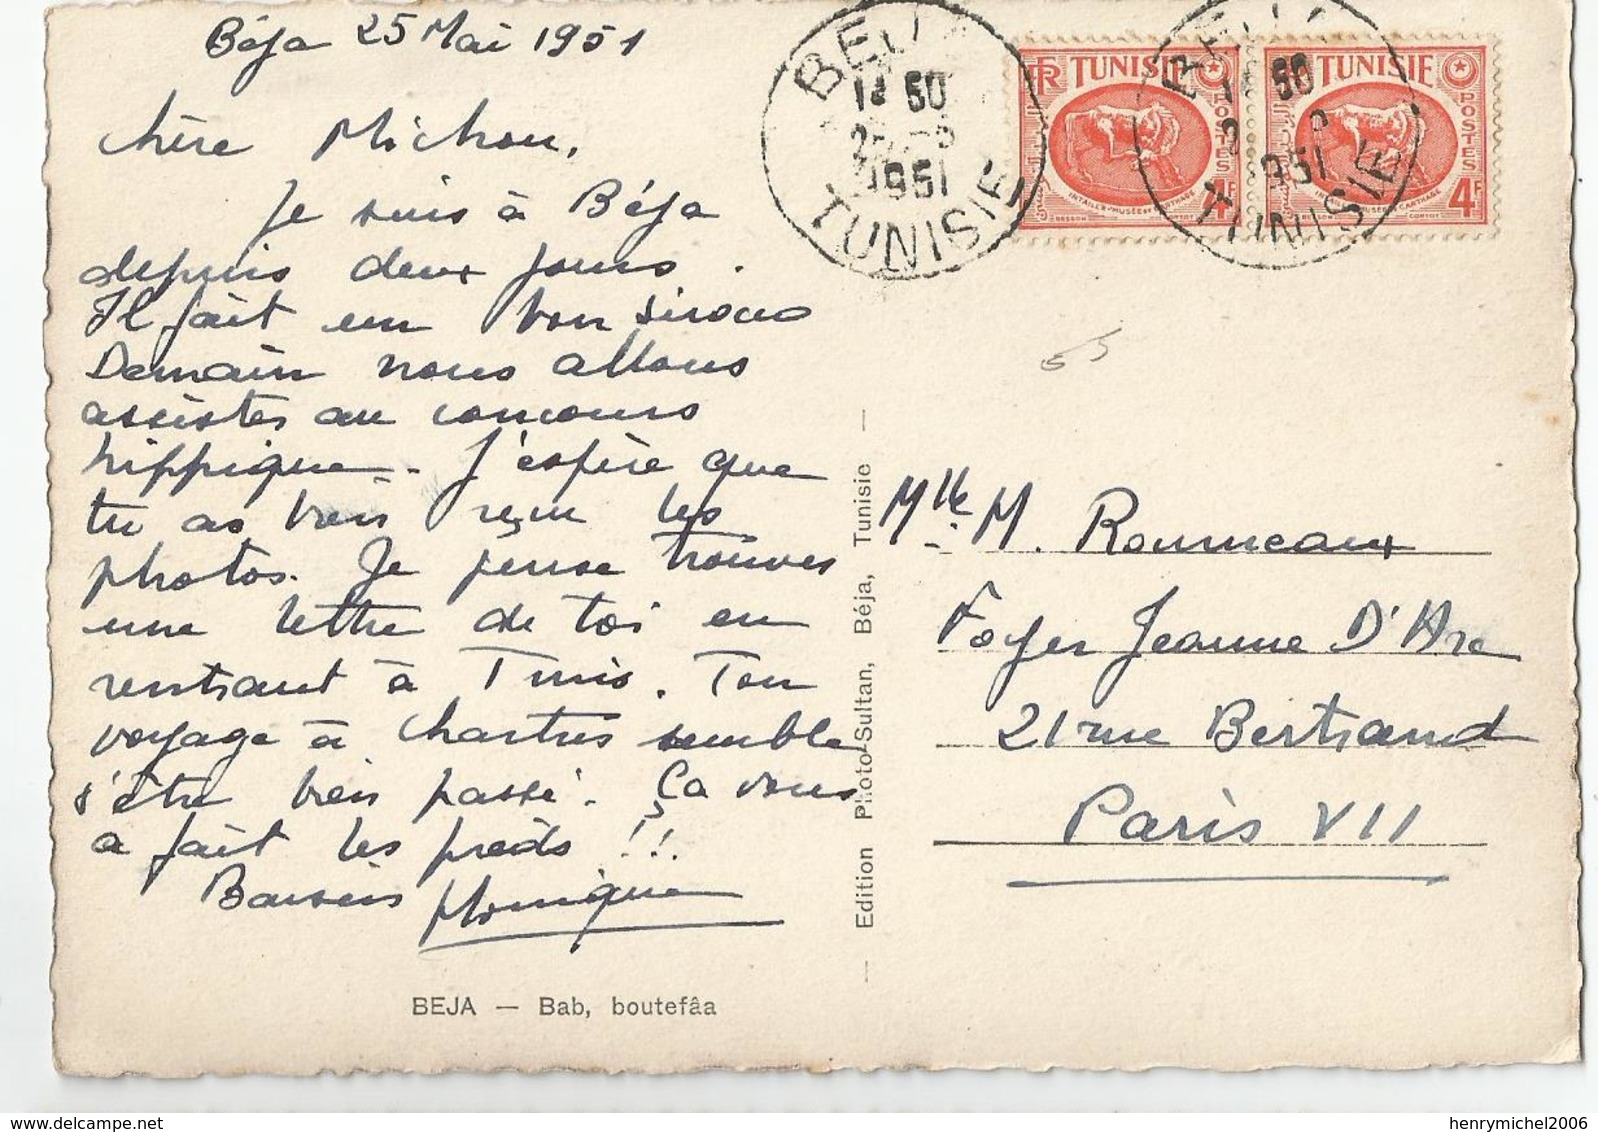 Béja 25 Mai 1951
Chère Michou,
Je suis à Béja
depuis deux jours.
Il fait un bon siroco
Demain nous allons
assister au concours
hippique. J'espère que
tu as bien reçu les
photos. Je pense trouver
une lettre de toi en
rentrant à Tunis. Ton
voyage à Chartres semble
s'être bien passé. Ça vous
a fait les pieds !!!
Baisers Monique
BEJA — Bab, boutefâa
— Edition Photo-Sultan, Béja, Tunisie —
BEJA
1951
TUNISIE
RF TUNISIE
POSTES
INTAILLE-MUSÉE DE CARTHAGE
4F
TUNISIE
POSTES
4F
BEJA
1951
TUNISIE
Mlle M. Roumeaux
Foyer Jeanne D'Arc
21 rue Bertrand
Paris VII
henrymichel2006